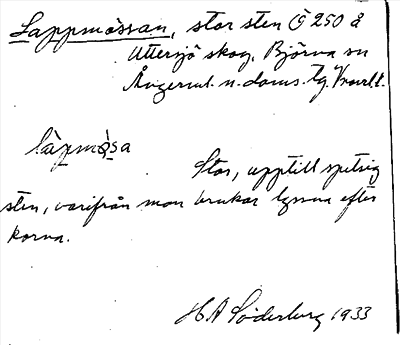 Lappmössan, stor sten Ö 250 å
Uttersjö skog, Björna sn
Ångerml. n. doms. tg.
làpmǫ̀sa
Stor, upptill spetsig
sten, varifrån man brukar lyssna efter
korna.
H A Söderberg 1933